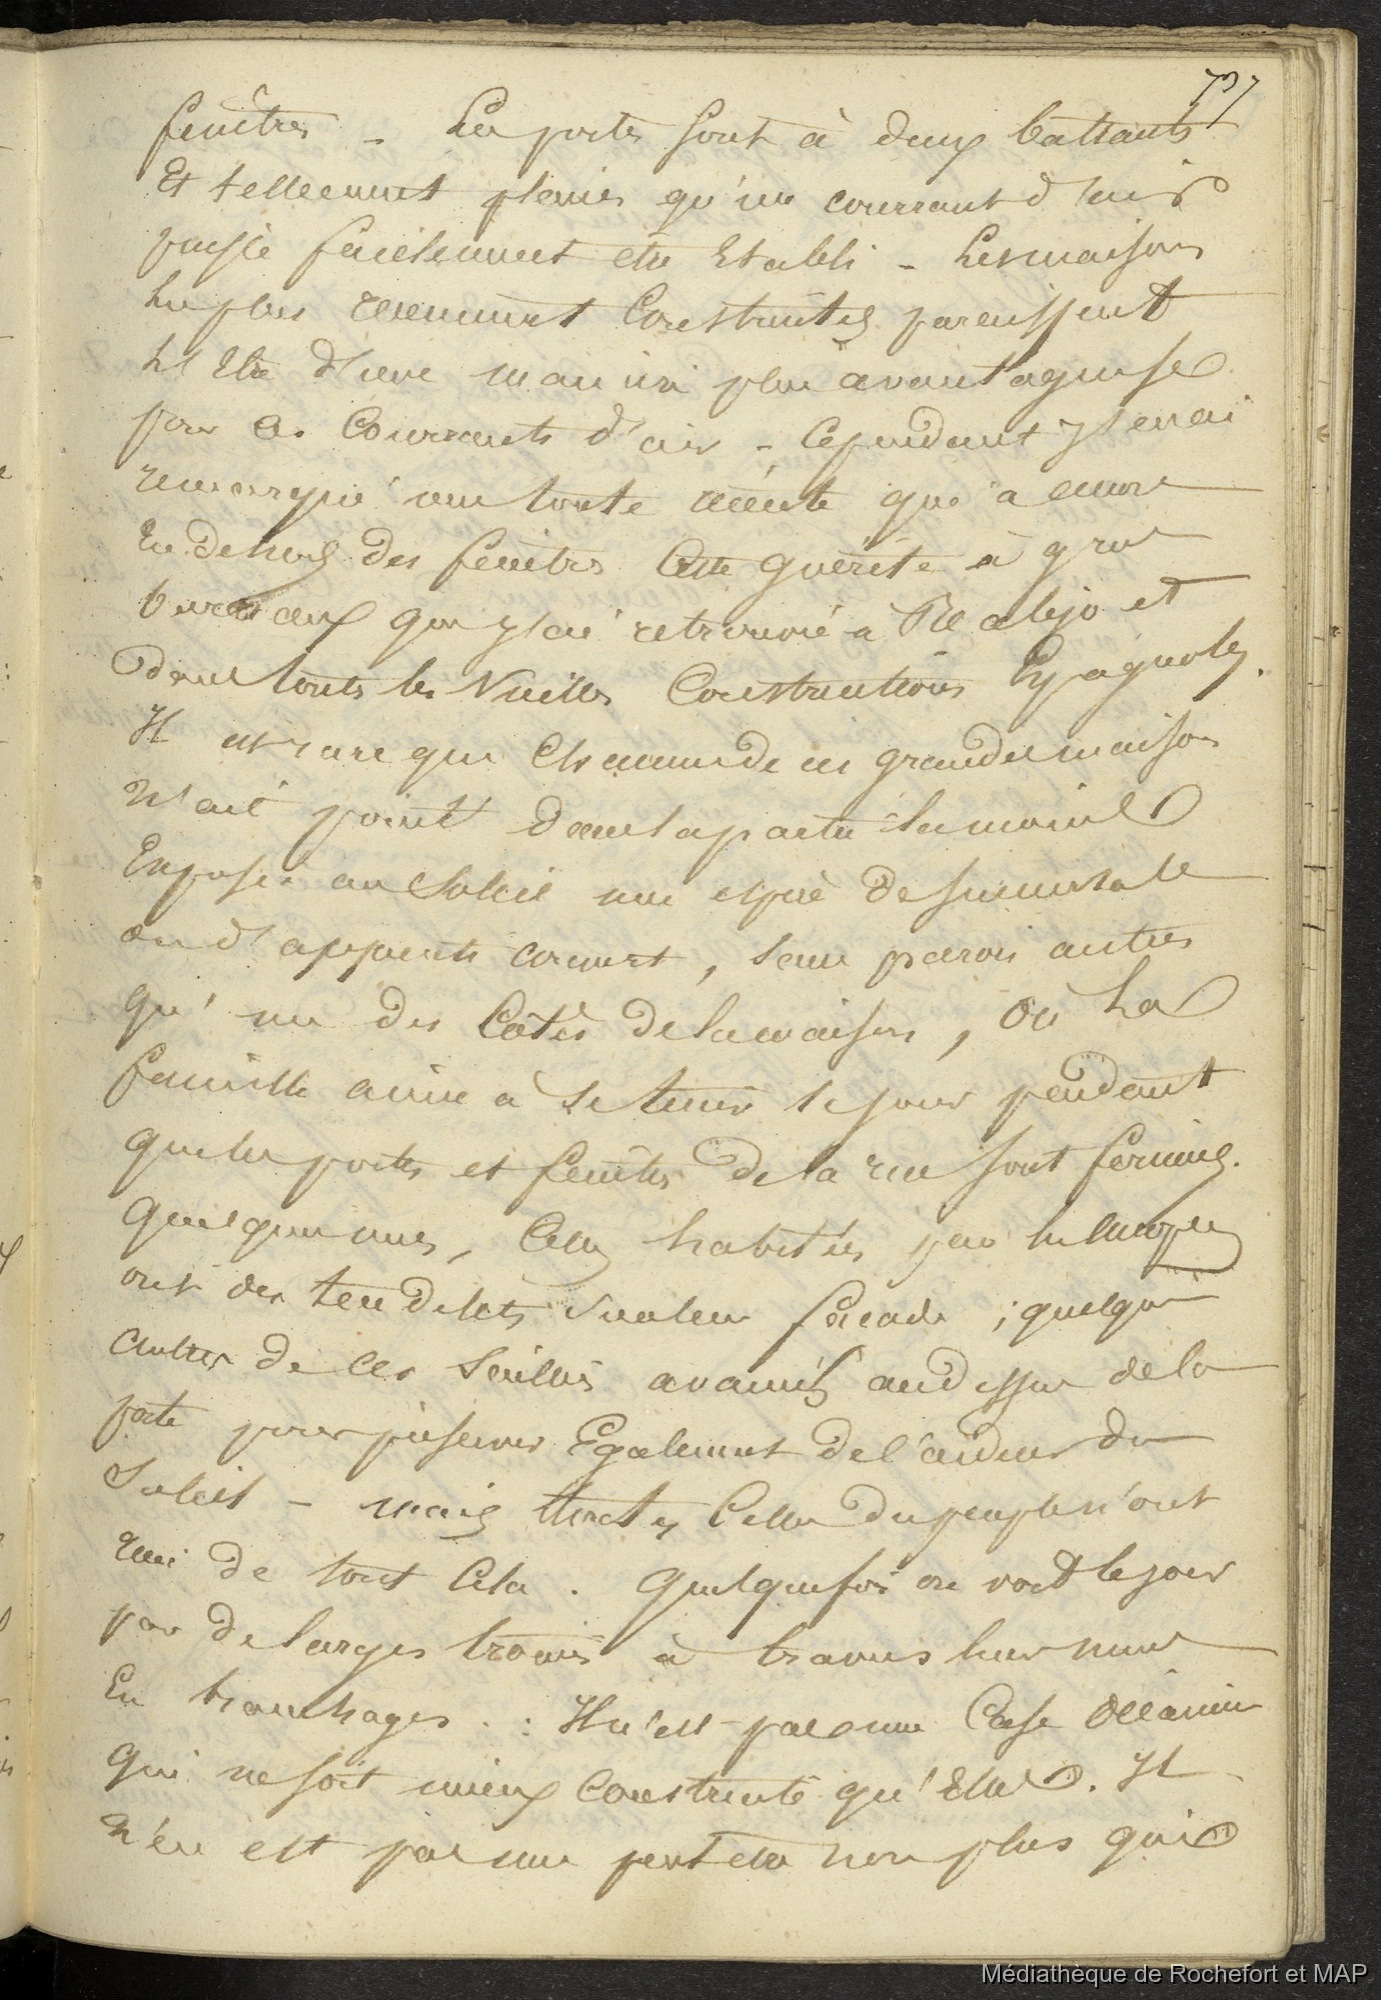 737
fenêtres - Les portes sont à deux battants
Et tellement placées qu'un courrant d'air
puisse facilement être Etabli - Les maisons
les plus récemment Construites paraissent
l'Etre d'une manière plus avantageuse
pour ces Courrants d'air - Cependant j'en ai
remarqué une toute récente qui a encore
En dehors des fenêtres Cette guérite à gros
barreaux que j'ai retrouvé à Realejo et
dans toutes les vieilles Constructions Espagnoles.
Il est rare que Chacune de ces grandes maisons
n'ait point dans la partie la moins
Exposée au Soleil une espèce de
ou d'appentis couvert, sans parois autres
qu'un des Côtés de la maison, où La
famille aime à se tenir le jour pendant
que les portes et fenêtres de la rue sont fermées.
quelques unes, Celles habitées par
ont des tendelets sur leur façade ; quelques
autres de ces saillies avancées au dessus de la
porte pour préserver Egalement de l'ardeur du
Soleil - mais toutes Celles du peuple n'ont
rien de tout Cela . Quelquefois on voit le jour
par de larges trouées à travers leurs murs
En branchages . : Il n'est pas une Case
qui ne soit mieux Construite qu'Elles. Il
n'en est pas une peut être non plus qui